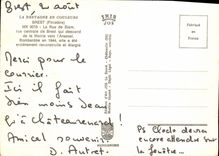 Brest, 2 août
LA BRETAGNE EN COULEURS
BREST (Finistère)
MX 9019 - La Rue de Siam,
rue centrale de Brest qui descend
de la Mairie vers l'Arsenal.
Bombardée en 1944, elle a été
entièrement reconstruite et élargie
JOS
Merci pour le
courrier.
Ici il fait
très moins beau
qu'à Châteaurenard!
Amical souvenir
D. Autret.
Ps
devra
encore attendre sur
la